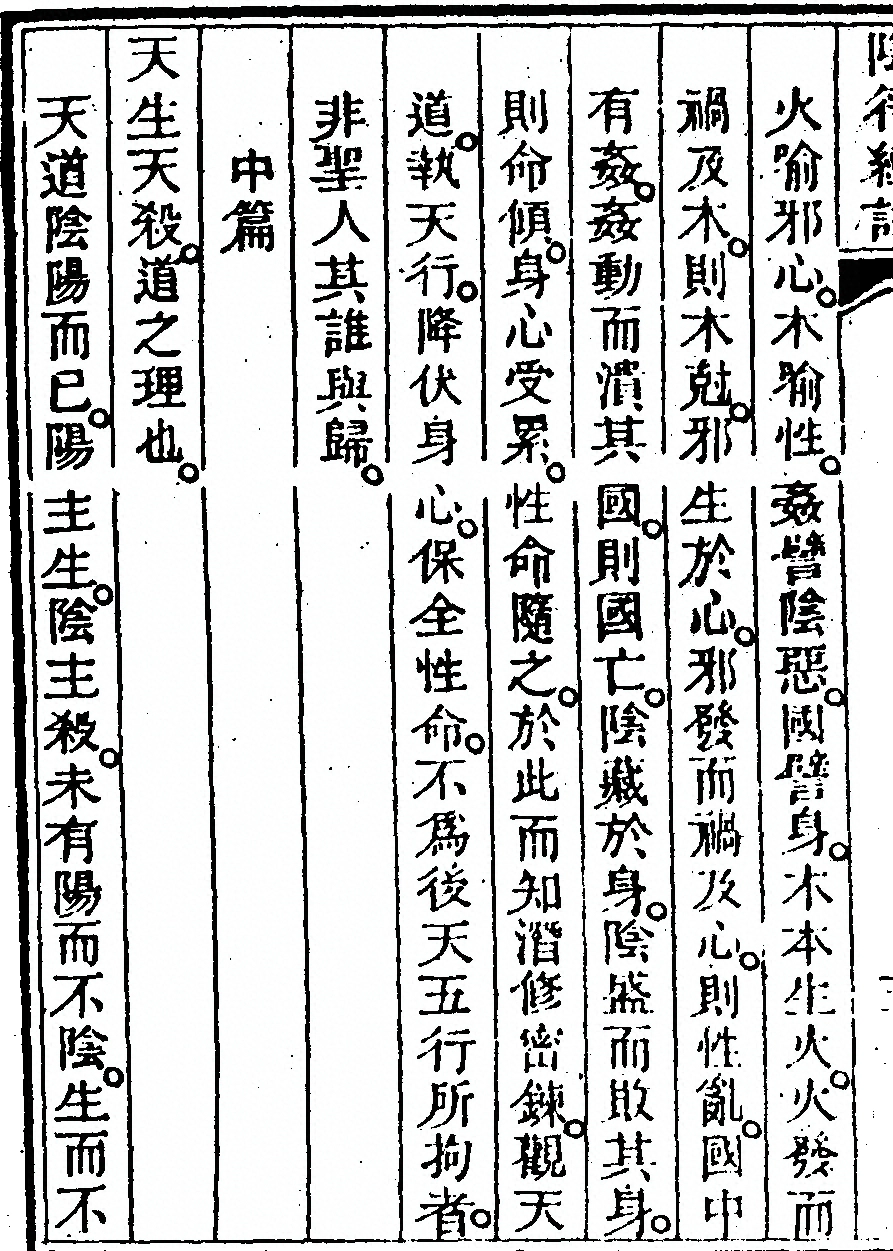 陰符經註
火喻邪心。木喻性。姦譬陰惡。國譬身。木本生火。火發而
禍及木。則木尅。邪生於心。邪發而禍及心。則性亂。國中
有姦。姦動而潰其國。則國亡。陰藏於身。陰盛而敗其身。
則命傾。身心受累。性命隨之。於此而知潛修密鍊。觀天
道。執天行。降伏身心。保全性命。不爲後天五行所拘者。
非聖人其誰與歸。
中篇
天生天殺。道之理也。
天道陰陽而已。陽主生。陰主殺。未有陽而不陰。生而不